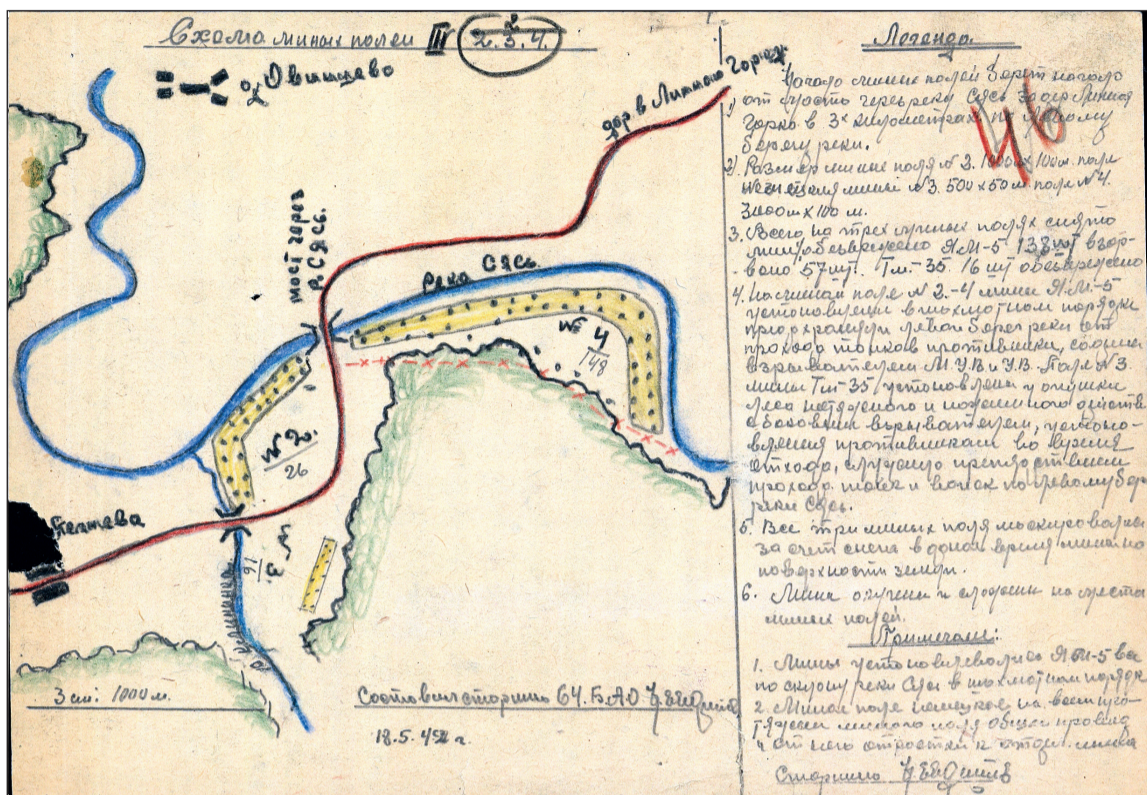 Схема миных полей III 2.3.4.
2
Овинцево
дор в Липную Горку
мост через
р. Сясь.
Река Сясь.
№ 4
148
№ 2.
26
№ 3.
16
3 см: 1000 м.
Составил старшина 64. Б.А.О
18.5.42 г.
Легенда
46
Начало миных полей берет начало
от моста через реку Сясь
Горка в 3х километрах по левому
берегу реки.
2) Размер мин поля № 2. 1000 х 100 м. поле
№ 3. 500 х 50 м. поле № 4.
3000 м х 100 м.
3. Всего на трех минных полях снято
мин обезврежено ЯМ-5 138 шт взор-
вано 57 шт. Тм-35 16 шт обезврежено
4. На минном поле № 2.-4 мины ЯМ-5
установлены в шахматном порядке
левой берег реки от
прохода танков противника, с одним
взрывателем М.У.В и У.В. Поле № 3.
мины Тм-35 установлены у опушки
леса натяжного и нажимного действия
с боковым взрывателем, установ-
противником во время
отхода,
прохода танков и войск по левому бер
реки Сясь.
5. Все три миных поля маскировались
за счет снега в данное время мины на
поверхности земли.
6. Мины и сложены на места
миных полей.
Примечание:
1. Мины устанавливались ЯМ-5 все
по склону реки Сясь в шахматном порядке
2. Миное поле немецкое, на всем про-
тяжении миного поля общий провод
от него отростки к отдел. минам
Старшина